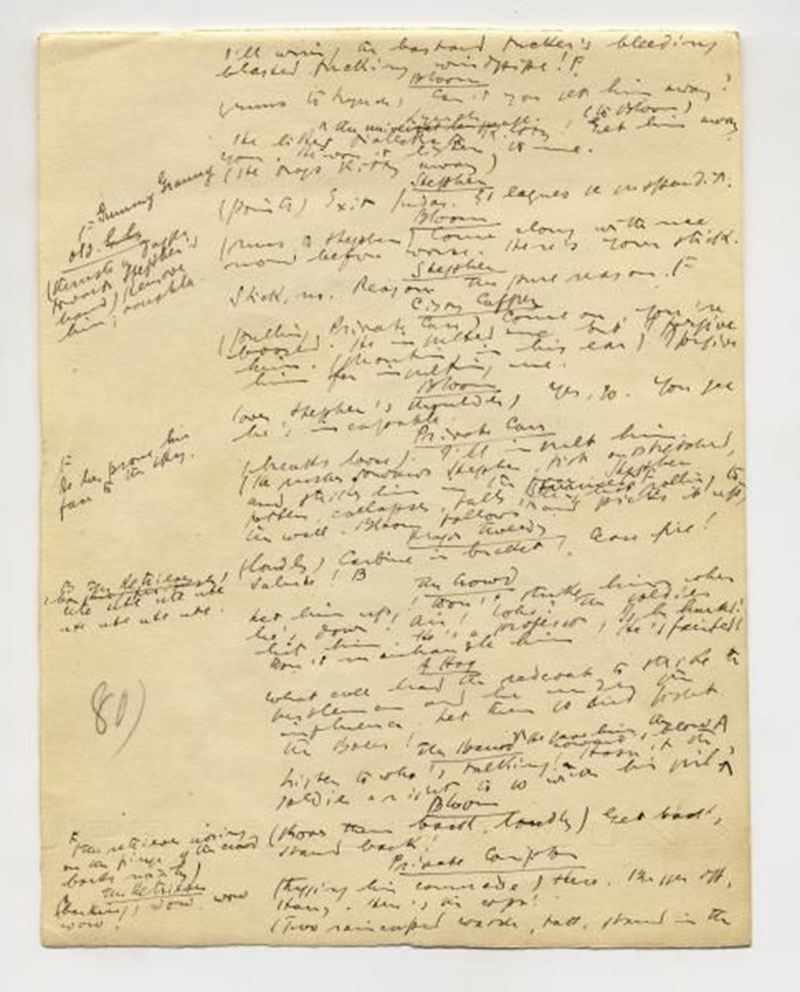 I'll wring the bastard fucker's bleeding
blasted fucking windpipe!
Bloom
(runs to Lynch) Can't you get him away?
Lynch
He likes dialectic, the universal language. Kitty! (to Bloom) Get him away,
you. He won't listen to me.
(He drags Kitty away)
Stephen
(points) Exit Judas. Et laqueo se suspendit.
Bloom
(runs to Stephen) Come along with me
now before worse. Here's your stick.
Stephen
Stick, no. Reason. This feast of pure reason. F
Cissy Caffrey
(pulling Private Carr) Come on, you're
boosed. He insulted me but I forgive
him. (shouting in his ear) I forgive
him for insulting me.
Bloom
(over Stephen's shoulder) Yes, go. You see
he's incapable.
Private Carr
(breaks loose) I'll insult him.
(He rushes towards Stephen, fist outstretched,
and strikes him in the face. Stephen
totters, collapses, falls
the wall. Bloom follows and picks it up)
Major Tweedy
(loudly) Carbine in bucket! Cease fire!
Salute! B
The Crowd
Let him up! Don't strike him when
he's down! Air! Who? The soldier
hit him. He's a professor. Is he hurted?
Don't manhandle him. He's fainted!
A Hag
What call had the redcoat to strike the
gentleman and he under the
influence. Let them go and fight
the Boers!
The Bawd
Listen to who's talking! Hasn't the
soldier a right to go with his girl?
Bloom
(shoves them back, loudly) Get back,
stand back!
Private Compton
(tugging his comrade) Here. Bugger off,
Harry. Here's the cops!
(Two raincaped watch, tall, stand in the
F Gummy Granny
old
(thrusts a dagger
towards Stephen's
hand) Remove
him, acushla
F
He lies prone, his
face to the sky.
F The Retriever
ute ute ute ute
ute ute ute ute.
80)
F (The retriever, nosing
on the fringe of the crowd
barks noisily)
The Retriever
(barking) wow wow
wow.